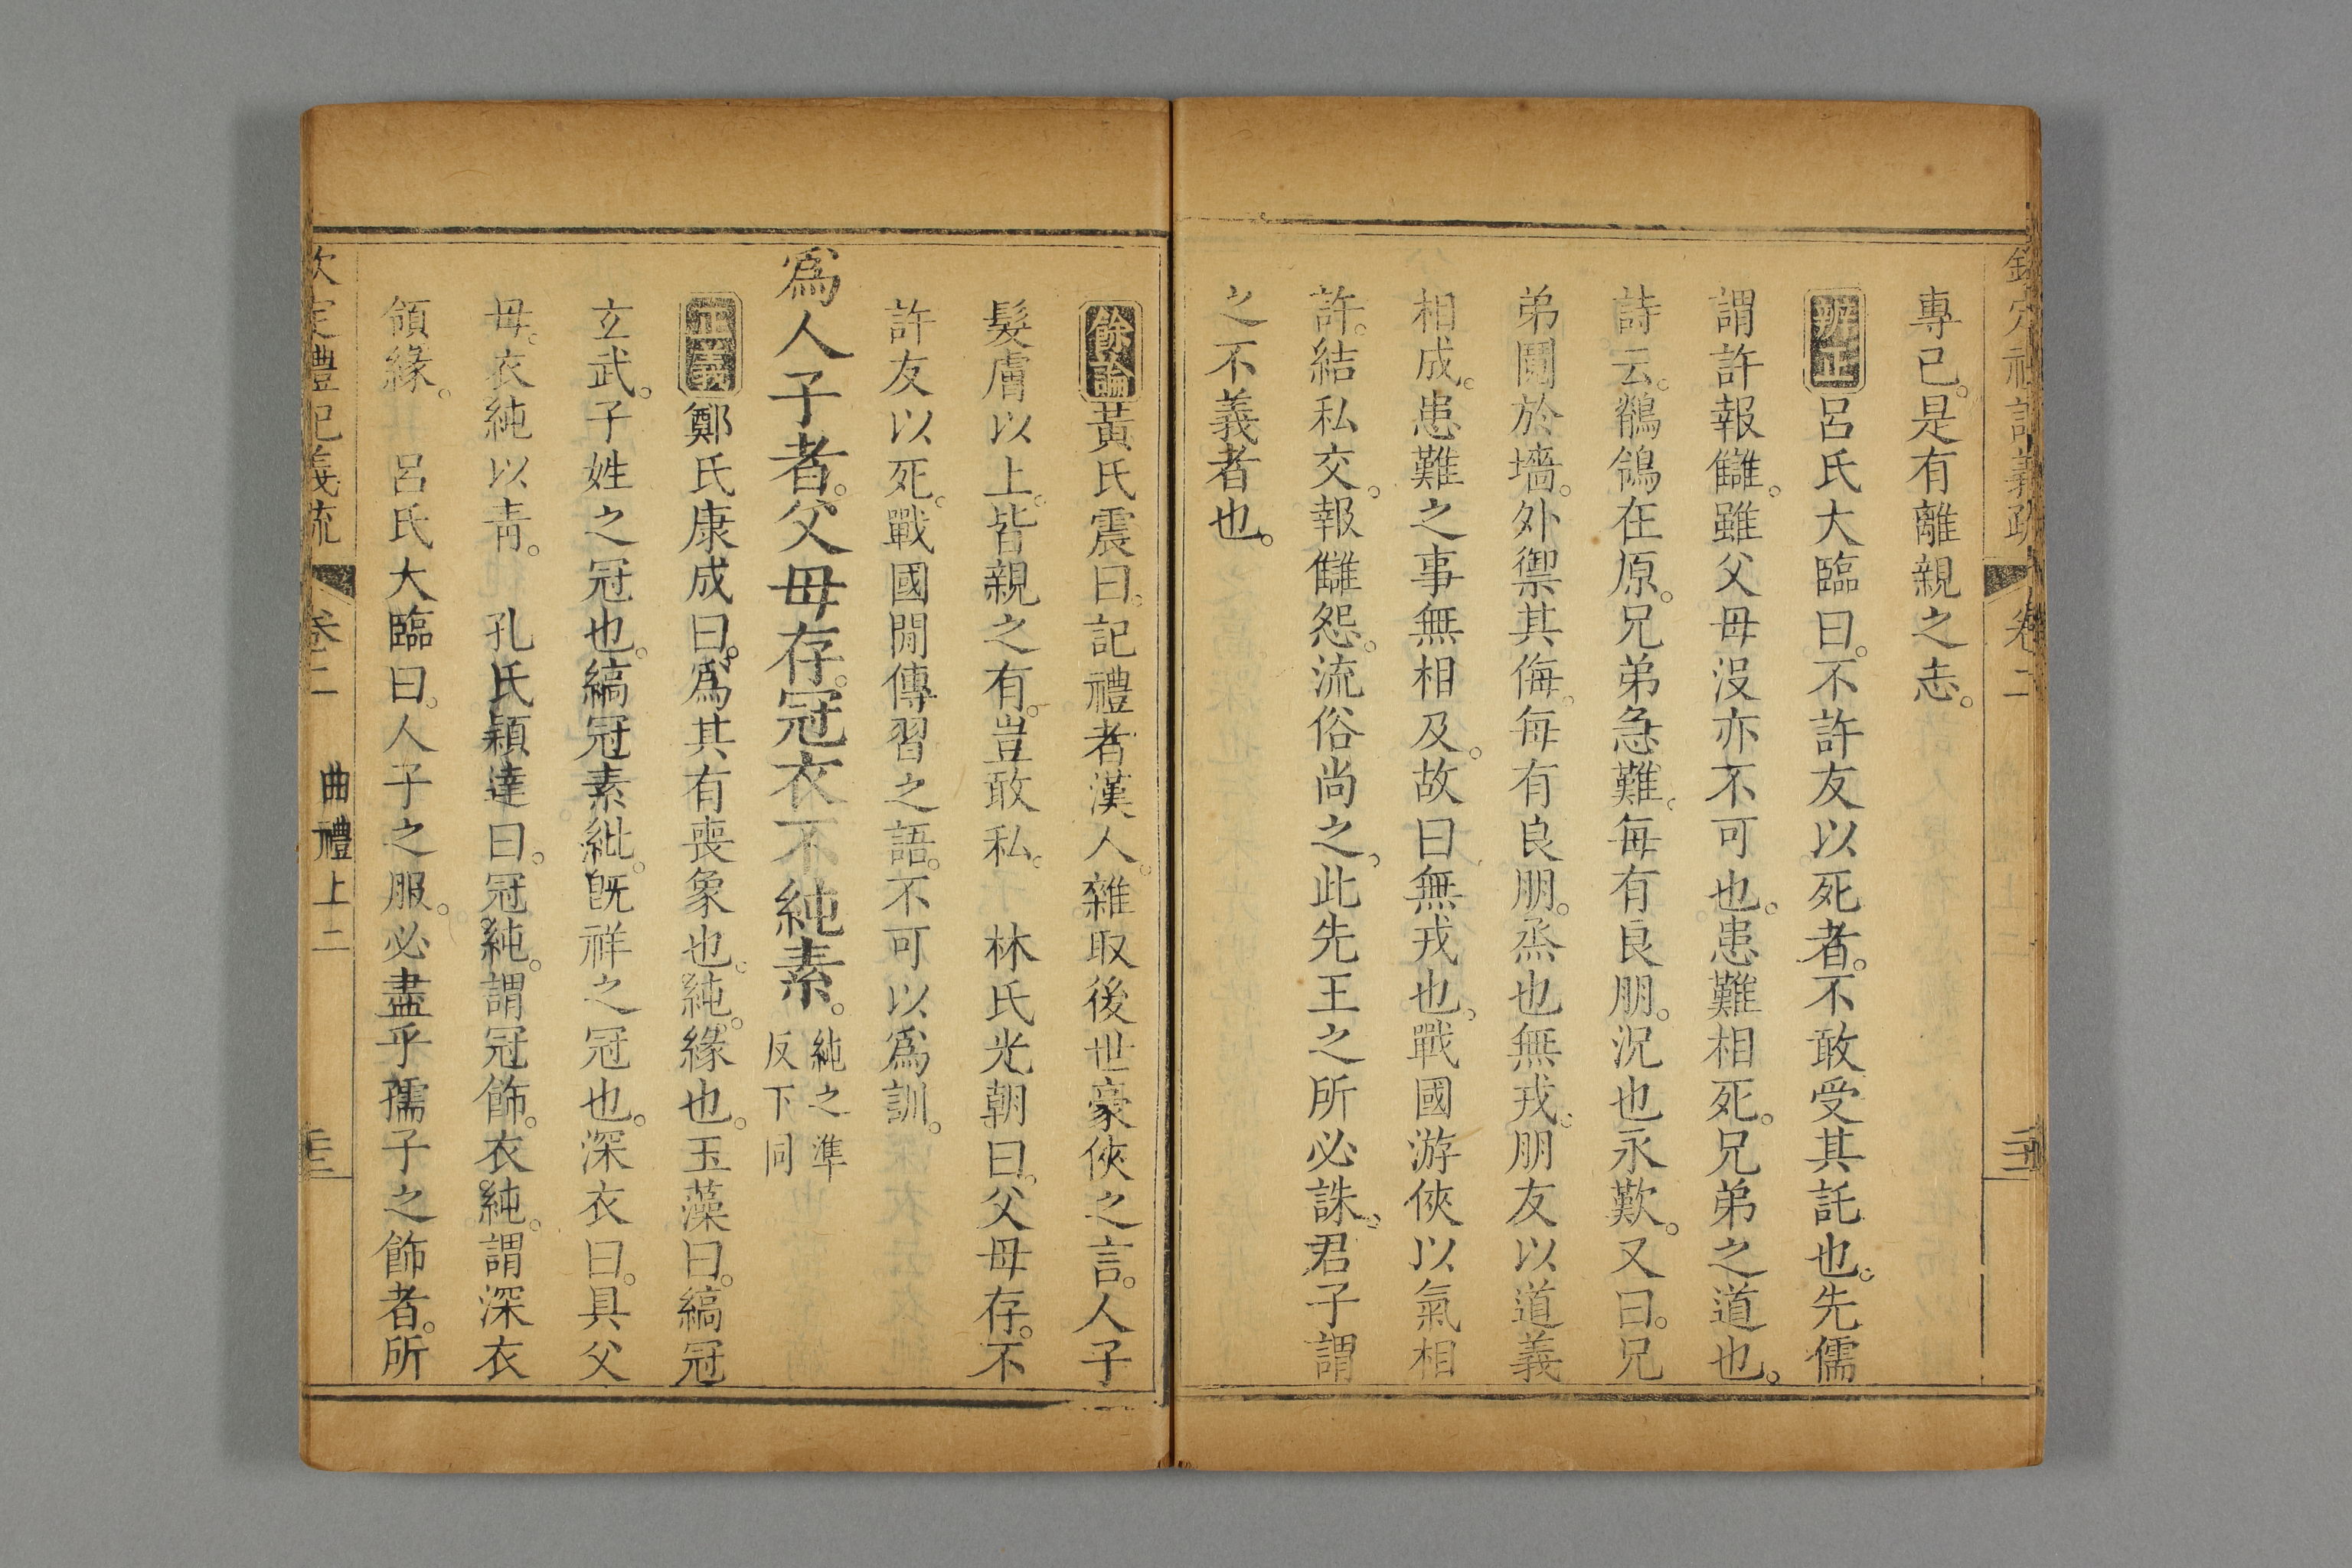 專已。是有離親之志。
辨正呂氏大臨曰。不許友以死者。不敢受其託也。先儒
謂許報讎。雖父母沒亦不可也。患難相死。兄弟之道也。
詩云。鶺鴒在原。兄弟急難。每有良朋。況也永歎。又曰。兄
弟鬩於墻。外禦其侮。每有良朋。烝也無戎。朋友以道義
相成。患難之事無相及。故曰無戎也。戰國游俠以氣相
許。結私交。報讎怨。流俗尚之。此先王之所必誅。君子謂
之不義者也。
餘論黃氏震曰。記禮者漢人。雜取後世豪俠之言。人子
髮膚以上。皆親之有。豈敢私。　林氏光朝曰。父母存。不
許友以死。戰國閒傳習之語。不可以爲訓。
爲人子者。父母存。冠衣不純素。純之準反下同
正義鄭氏康成曰。爲其有喪象也。純。緣也。玉藻曰。縞冠
玄武。子姓之冠也。縞冠素紕。旣祥之冠也。深衣曰。具父
母。衣純以靑。　孔氏穎達曰。冠純。謂冠飾。衣純。謂深衣
領緣。　呂氏大臨曰。人子之服。必盡乎孺子之飾者。所
欽定禮記義疏　卷二　曲禮上二